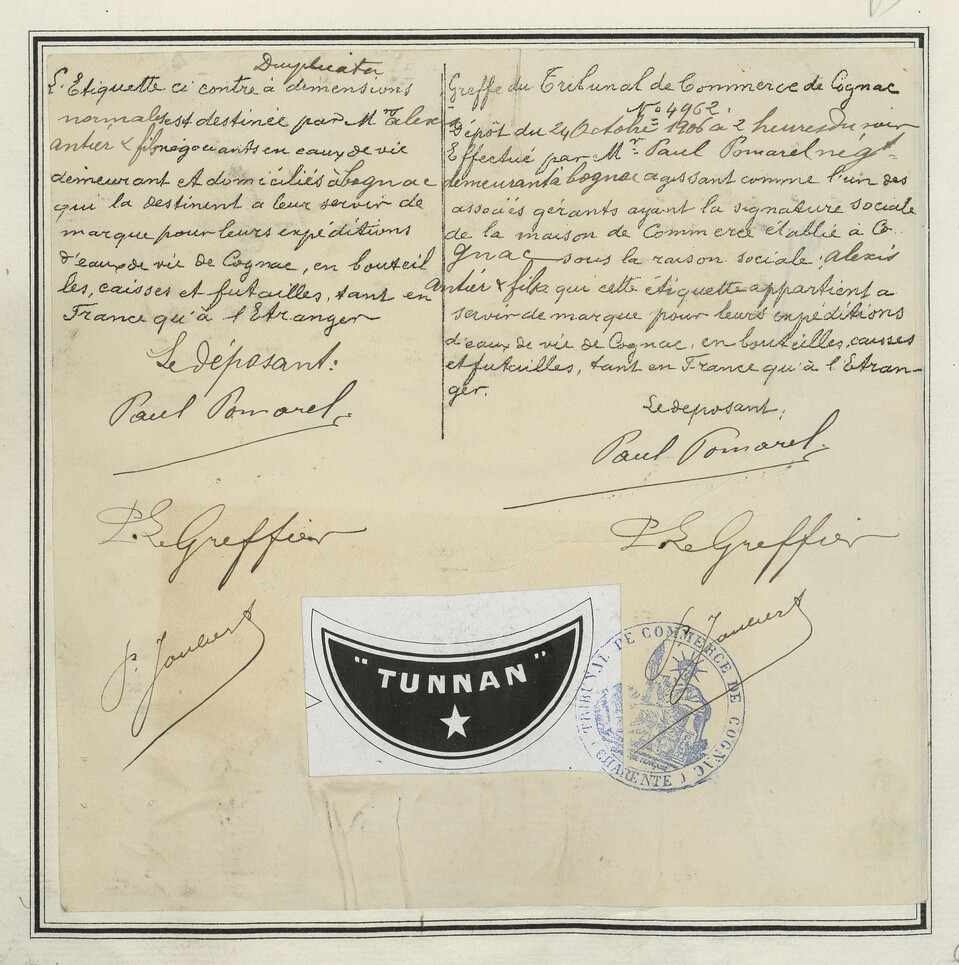 Duplicata
L'Etiquette ci contre à dimensions
normales est destinée par Mr Alexis
Antier & fils negociants en eaux de vie
demeurant et domiciliés à Cognac
qui la destinent a leur servir de
marque pour leurs expéditions
d'eaux de vie de Cognac, en bouteil
les, caisses et futailles, tant en
France qu'à l'Etranger
Le déposant:
Paul Pomarel
P. Le Greffier
Greffe du Tribunal de Commerce de Cognac
No 4962.
Dépôt du 24 Octobre 1906 à 2 heures du soir
Effectué par Mr. Paul Pomarel négt
demeurant à Cognac agissant comme l'un des
associés gérants ayant la signature sociale
de la maison de Commerce etablie à Co-
gnac sous la raison sociale: Alexis
Antier & fils que cette étiquette appartient a
servir de marque pour leurs expéditions
d'eaux de vie de Cognac, en bouteilles, caisses
et futailles, tant en France qu'à l'Etran-
ger.
Le deposant:
Paul Pomarel
P. Le Greffier
"TUNNAN"
TRIBUNAL DE COMMERCE DE COGNAC
(CHARENTE)